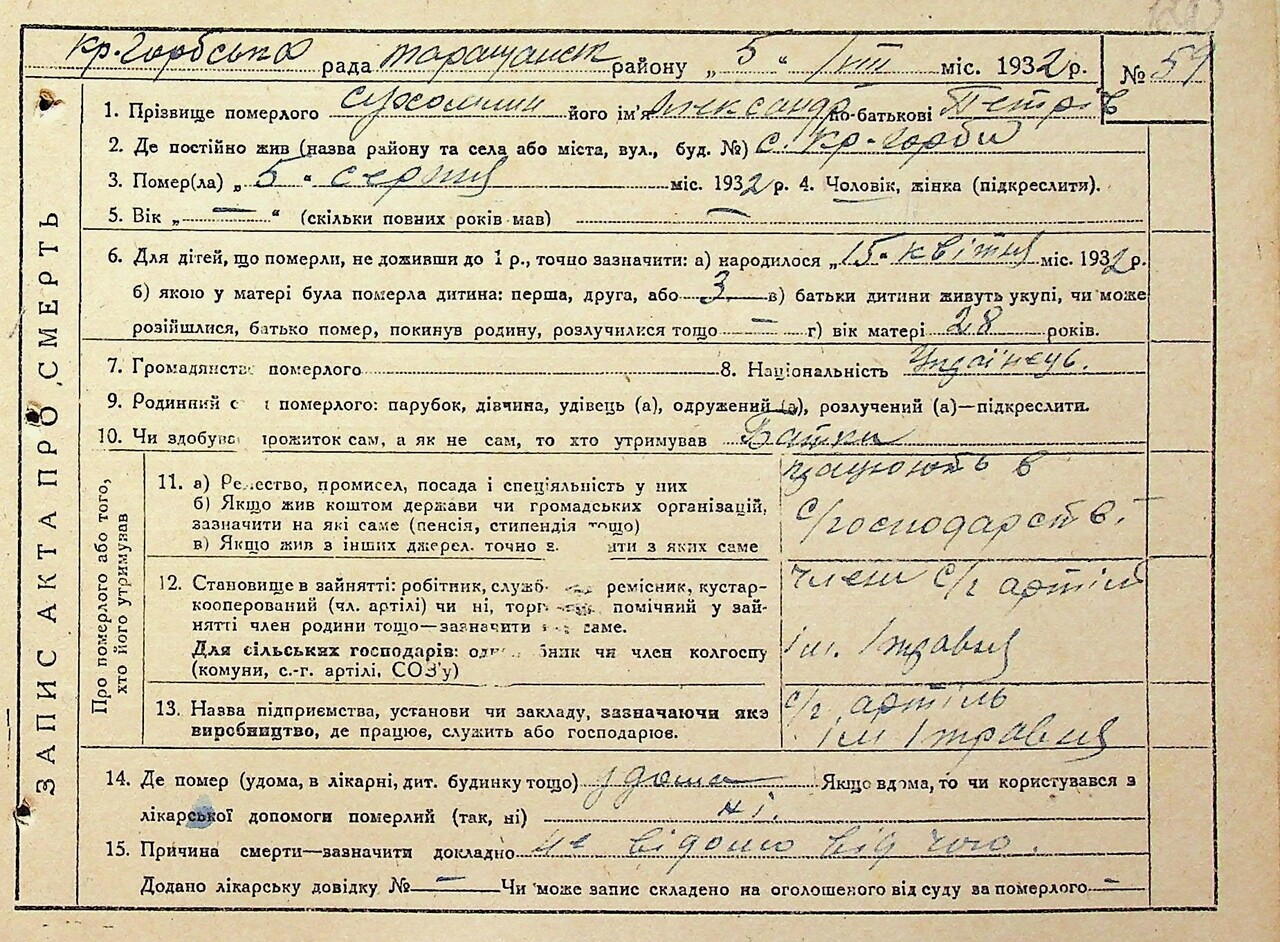 кр-Горбська рада Таращанськ району „5“ /VIII міс. 1932 р. № 59
1. Прізвище померлого Сухомлин його ім'я Олександр по-батькові Петрів
2. Де постійно жив (назва району та села або міста, вул., буд. №) с. кр-Горби
3. Помер(ла) „5“ серпня міс. 1932 р. 4. Чоловік, жінка (підкреслити).
5. Вік „—“ (скільки повних років мав) —
6. Для дітей, що померли, не доживши до 1 р., точно зазначити: а) народилося „15“ квітня міс. 1932 р.
б) якою у матері була померла дитина: перша, друга, або 3 в) батьки дитини живуть укупі, чи може
розійшлися, батько помер, покинув родину, розлучилися тощо — г) вік матері 28 років.
7. Громадянство померлого 8. Національність Українець.
9. Родинний с померлого: парубок, дівчина, удівець (а), одружений (а), розлучений (а)—підкреслити.
10. Чи здобува прожиток сам, а як не сам, то хто утримував Батьки
ЗАПИС АКТА ПРО СМЕРТЬ
Про померлого або того, хто його утримував
11. а) Ремество, промисел, посада і спеціяльність у них
б) Якщо жив коштом держави чи громадських організацій,
зазначити на які саме (пенсія, стипендія тощо)
в) Якщо жив з інших джерел, точно з ити з яких саме
працюють в
с/господарстві
12. Становище в зайнятті: робітник, служб ремісник, кустар-
кооперований (чл. артілі) чи ні, торг помічний у зай-
нятті член родини тощо—зазначити саме.
Для сільських господарів: од бник чи член колгоспу
(комуни, с.-г. артілі, СОЗ'у)
член с/г артілі
ім. 1 травня
13. Назва підприємства, установи чи закладу, зазначаючи яке
виробництво, де працює, служить або господарює.
с/г. артіль
ім 1 травня
14. Де помер (удома, в лікарні, дит. будинку тощо) удома Якщо вдома, то чи користувався з
лікарської допомоги померлий (так, ні) ні.
15. Причина смерти—зазначити докладно не відомо від чого.
Додано лікарську довідку № — Чи може запис складено на оголошеного від суду за померлого —